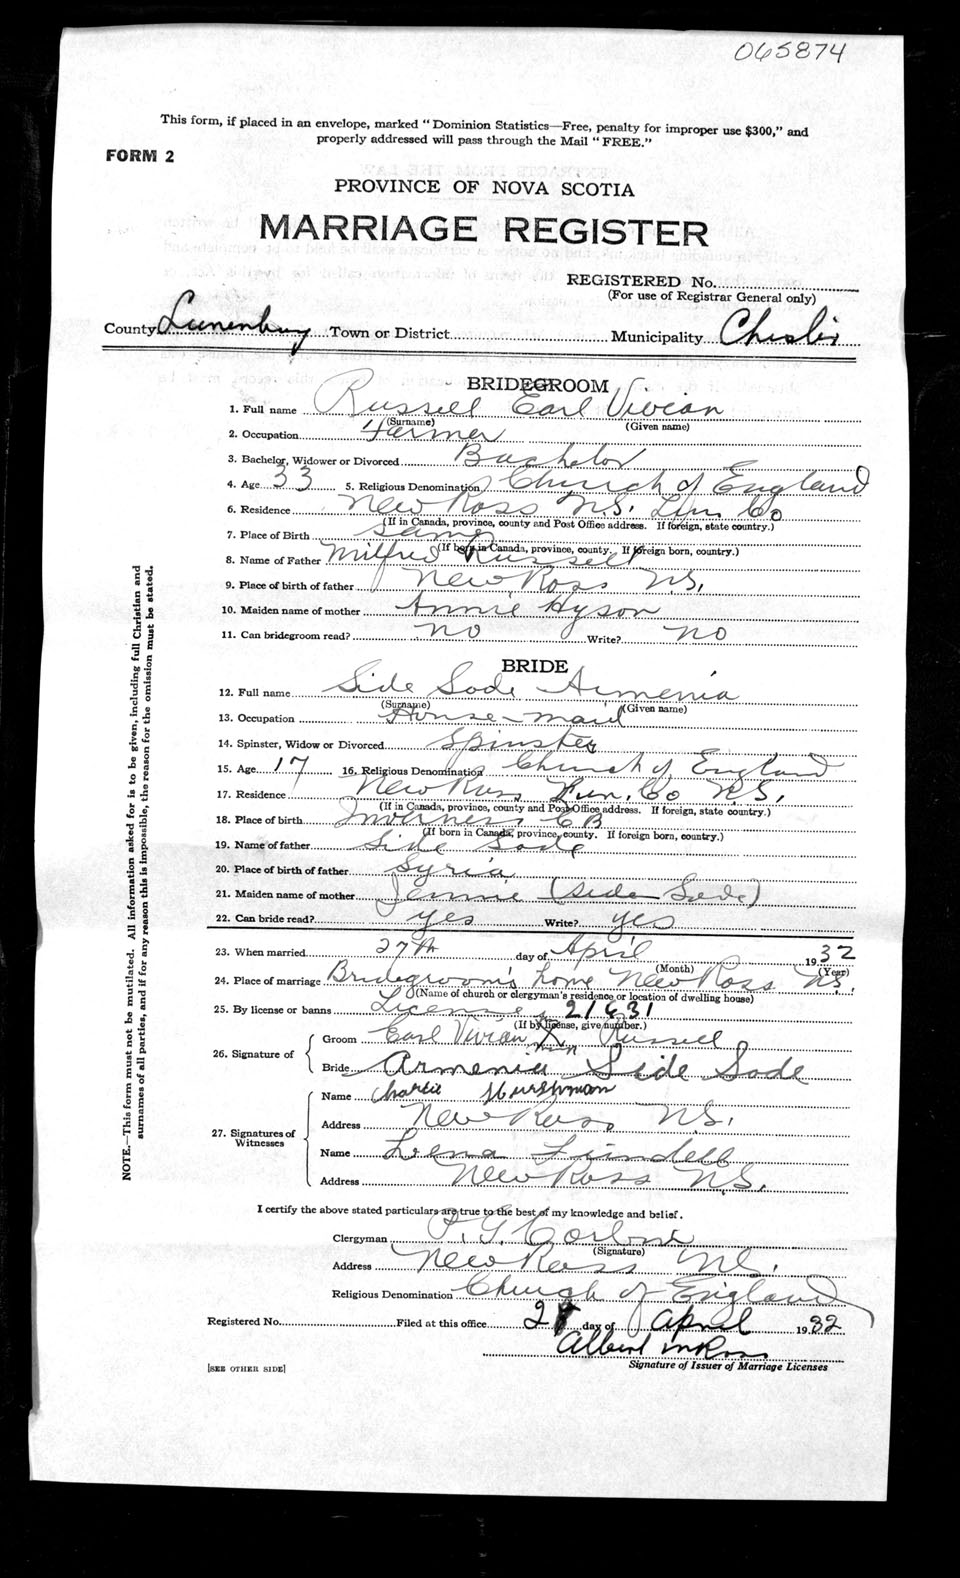 065874
This form, if placed in an envelope, marked "Dominion Statistics—Free, penalty for improper use $300," and
properly addressed will pass through the Mail "FREE."
FORM 2
PROVINCE OF NOVA SCOTIA
MARRIAGE REGISTER
REGISTERED No.
(For use of Registrar General only)
County Lunenburg Town or District Municipality Chester
BRIDEGROOM
1. Full name Russell Earl Vivian
(Surname) (Given name)
2. Occupation Farmer
3. Bachelor, Widower or Divorced Bachelor
4. Age 33 5. Religious Denomination Church of England
6. Residence New Ross N.S. Lun Co
(If in Canada, province, county and Post Office address. If foreign, state country.)
7. Place of Birth Same
(If born in Canada, province, county. If foreign born, country.)
8. Name of Father Milfred Russell
9. Place of birth of father New Ross N.S.
10. Maiden name of mother Annie Hyson
11. Can bridegroom read? no Write? no
BRIDE
12. Full name Side Sode Armenia
(Surname) (Given name)
13. Occupation House-maid
14. Spinster, Widow or Divorced Spinster
15. Age 17 16. Religious Denomination Church of England
17. Residence New Ross Lun. Co N.S.
(If in Canada, province, county and Post Office address. If foreign, state country.)
18. Place of birth Inverness C B
(If born in Canada, province, county. If foreign born, country.)
19. Name of father Side Sode
20. Place of birth of father Syria
21. Maiden name of mother Jennie (Side Sode)
22. Can bride read? yes Write? yes
23. When married 27th day of April 1932
(Month) (Year)
24. Place of marriage Bridegroom's home New Ross N.S.
(Name of church or clergyman's residence or location of dwelling house)
25. By license or banns License 21631
(If by license, give number.)
26. Signature of
Groom Earl Vivian X Russell
Bride Armenia Side Sode
27. Signatures of Witnesses
Name Charlie Hurshman
Address New Ross N.S.
Name Lena
Address New Ross N.S.
I certify the above stated particulars are true to the best of my knowledge and belief.
Clergyman
(Signature)
Address New Ross N.S.
Religious Denomination Church of England
Registered No. Filed at this office day of April 1932
Albert
Signature of Issuer of Marriage Licenses
[SEE OTHER SIDE]
NOTE.—This form must not be mutilated. All information asked for is to be given, including full Christian and
surnames of all parties, and if for any reason this is impossible, the reason for the omission must be stated.